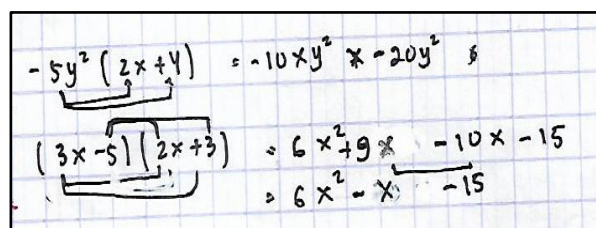 -5y² (2x+4) = -10xy² * -20y²
(3x-5)(2x+3) = 6x²+9x -10x -15
= 6x² - x -15